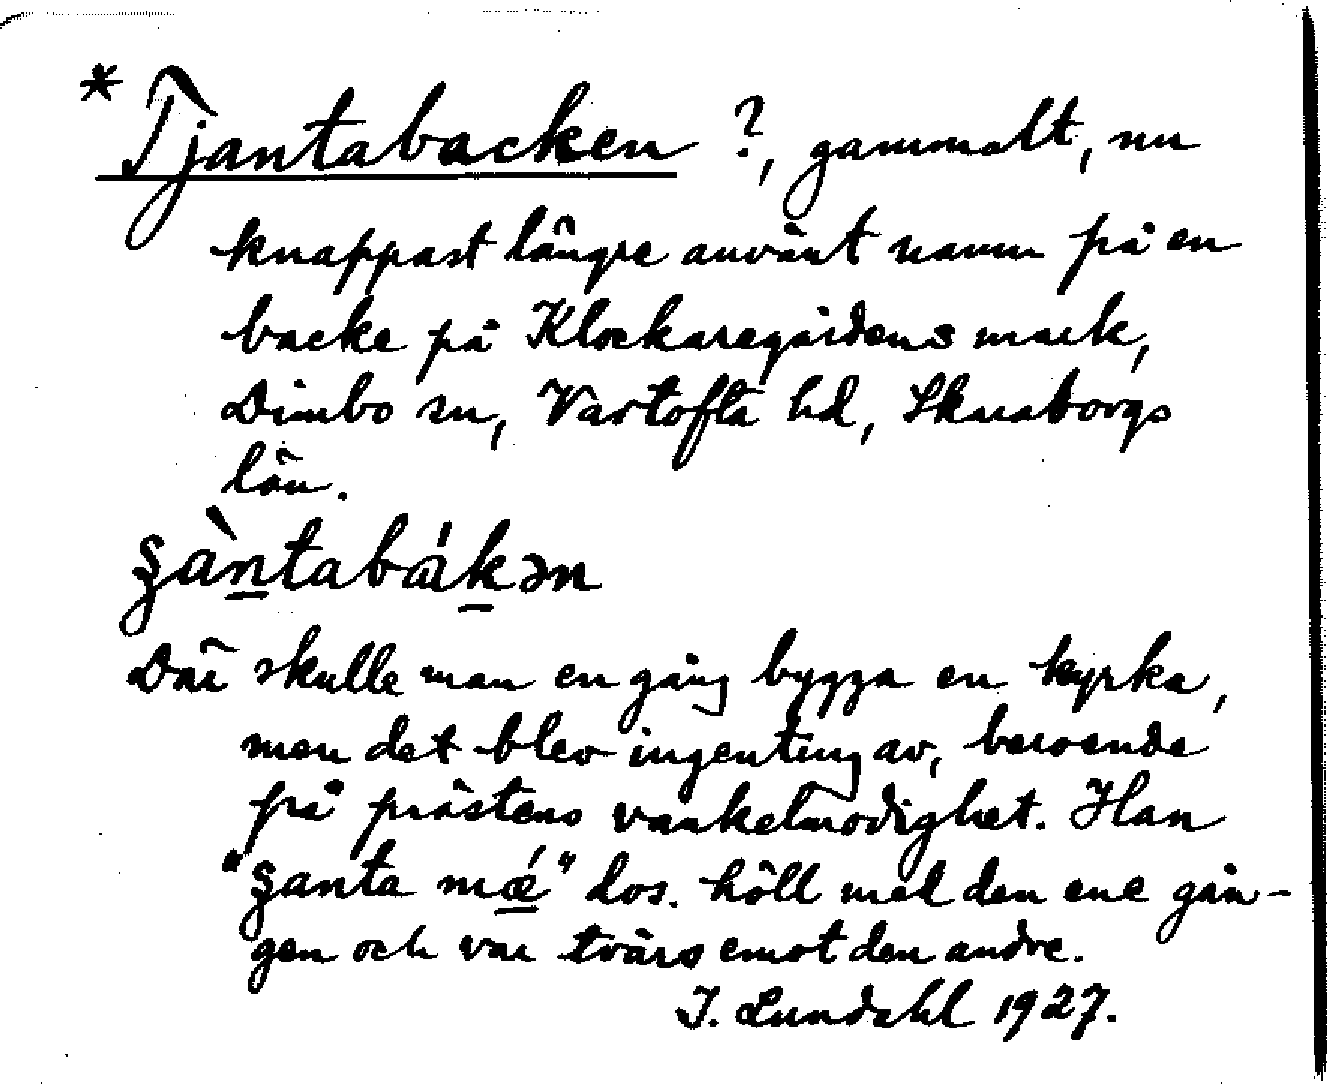 * Tjantabacken ?, gammalt, nu
knappast längre använt namn på en
backe på Klockaregårdens mark,
Dimbo sn, Vartofta hd, Skaraborgs
län.
ʂàn̲tabák̲ən
Där skulle man en gång bygga en kyrka,
men det blev ingenting av, beroende
på prästens vankelmodighet. Han
"ʂanta mǽ̲" dvs. höll med den ene gån-
gen och var tvärs emot den andre.
I. Lundahl 1927.